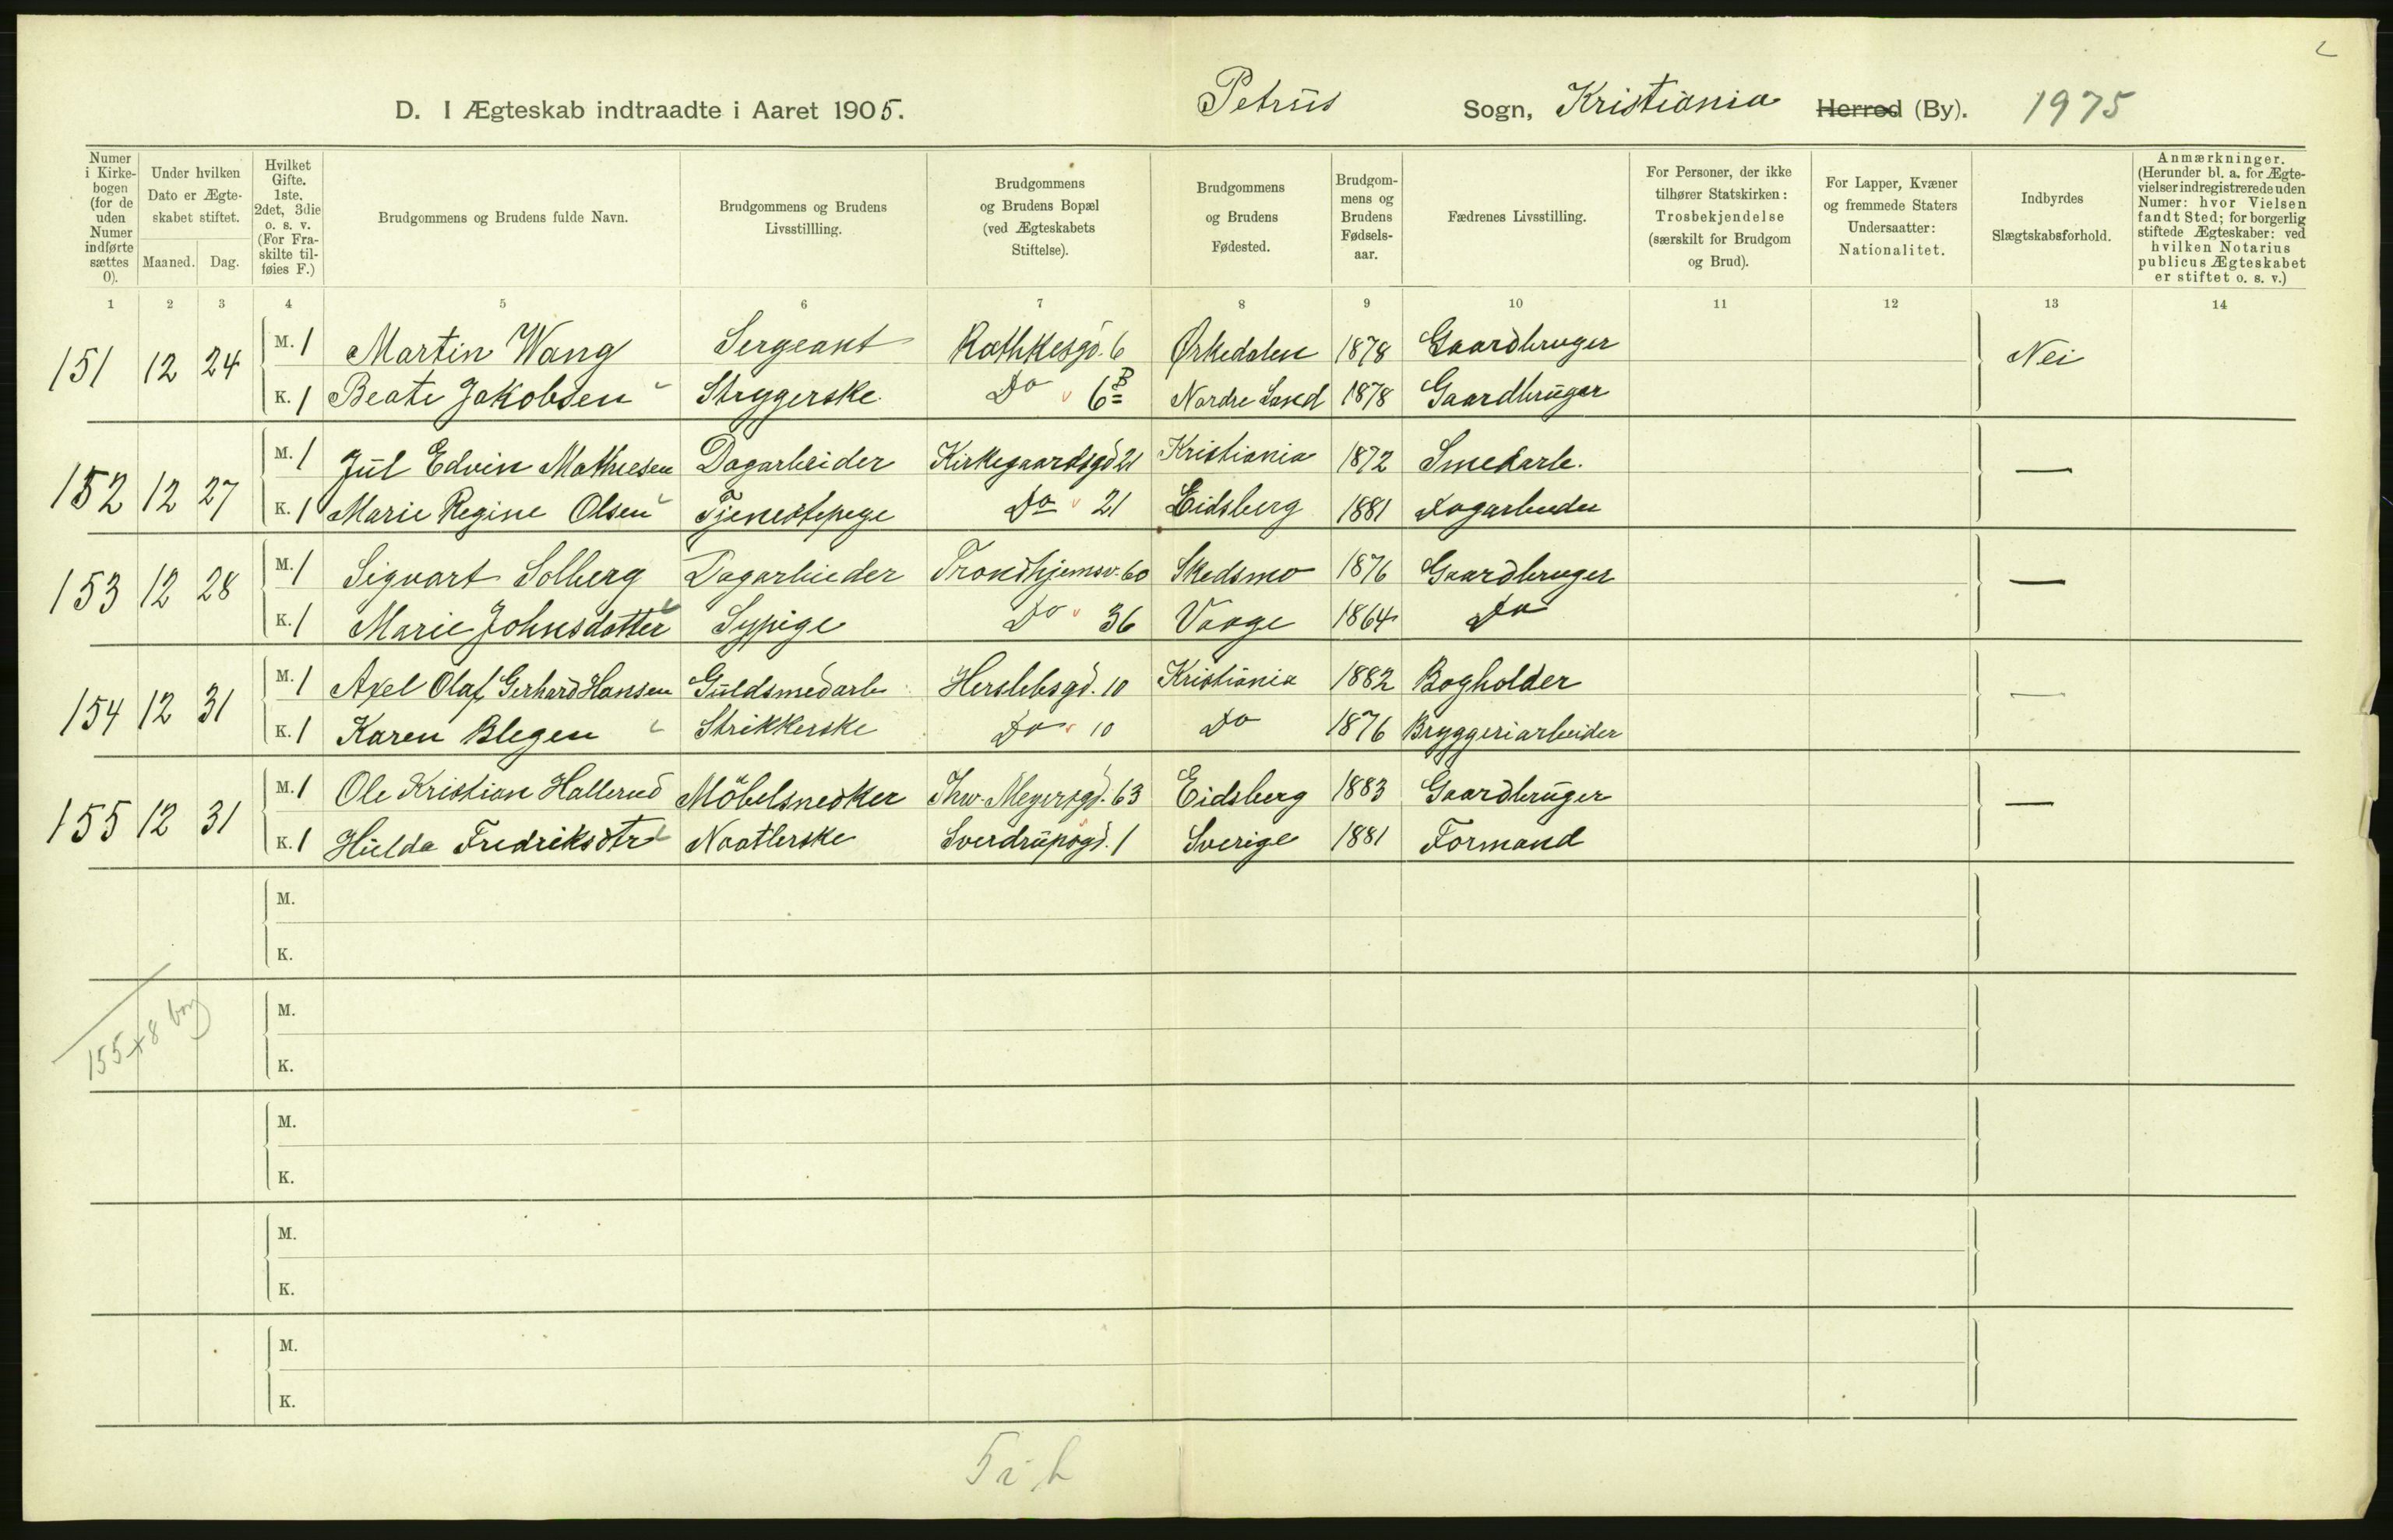 D. I Ægteskab indtraadte i Aaret 1905. Petrus Sogn, Kristiania Herred (By). 1975
Numer i Kirkebogen (for de uden Numer indførte sættes 0).
Under hvilken Dato er Ægteskabet stiftet.
Maaned. Dag.
Hvilket Gifte. 1ste. 2det, 3die o. s. v. (For Fraskilte tilføies F.)
Brudgommens og Brudens fulde Navn.
Brudgommens og Brudens Livsstillling.
Brudgommens og Brudens Bopæl (ved Ægteskabets Stiftelse).
Brudgommens og Brudens Fødested.
Brudgommens og Brudens Fødselsaar.
Fædrenes Livsstilling.
For Personer, der ikke tilhører Statskirken: Trosbekjendelse (særskilt for Brudgom og Brud).
For Lapper, Kvæner og fremmede Staters Undersaatter: Nationalitet.
Indbyrdes Slægtskabsforhold.
Anmærkninger. (Herunder bl. a. for Ægtevielser indregistrerede uden Numer: hvor Vielsen fandt Sted; for borgerlig stiftede Ægteskaber: ved hvilken Notarius publicus Ægteskabet er stiftet o. s. v.)
1 2 3 4 5 6 7 8 9 10 11 12 13 14
151 12 24 M. 1 Martin Wang Sergeant Rathkesgd. 6 Ørkedalen 1878 Gaardbruger Nei
K. 1 Beate Jakobsen Strygerske Do 6B Nordre Land 1878 Gaardbruger
152 12 27 M. 1 Jul Edvin Mathiesen Dagarbeider Kirkegaardsgd 21 Kristiania 1872 Smedarb. —
K. 1 Marie Regine Olsen Tjenestepige Do 21 Eidsberg 1881 Dagarbeider
153 12 28 M. 1 Sigvart Solberg Dagarbeider Trondhjemsv. 60 Skedsmo 1876 Gaardbruger —
K. 1 Marie Johnsdatter Sypige Do 36 Vaage 1864 Do
154 12 31 M. 1 Axel Olaf Gerhard Hansen Guldsmedarb Herslebsgd. 10 Kristiania 1882 Bogholder —
K. 1 Karen Blegen Strikkerske Do 10 Do 1876 Bryggeriarbeider
155 12 31 M. 1 Ole Kristian Hallerud Möbelsnedker Thv. Meyersgd. 63 Eidsberg 1883 Gaardbruger —
K. 1 Hulda Fredriksdtr Naatlerske Sverdrupsgd. 1 Sverige 1881 Formand
M.
K.
155+8 borg
M.
K.
M.
K.
M.
K.
M.
K.